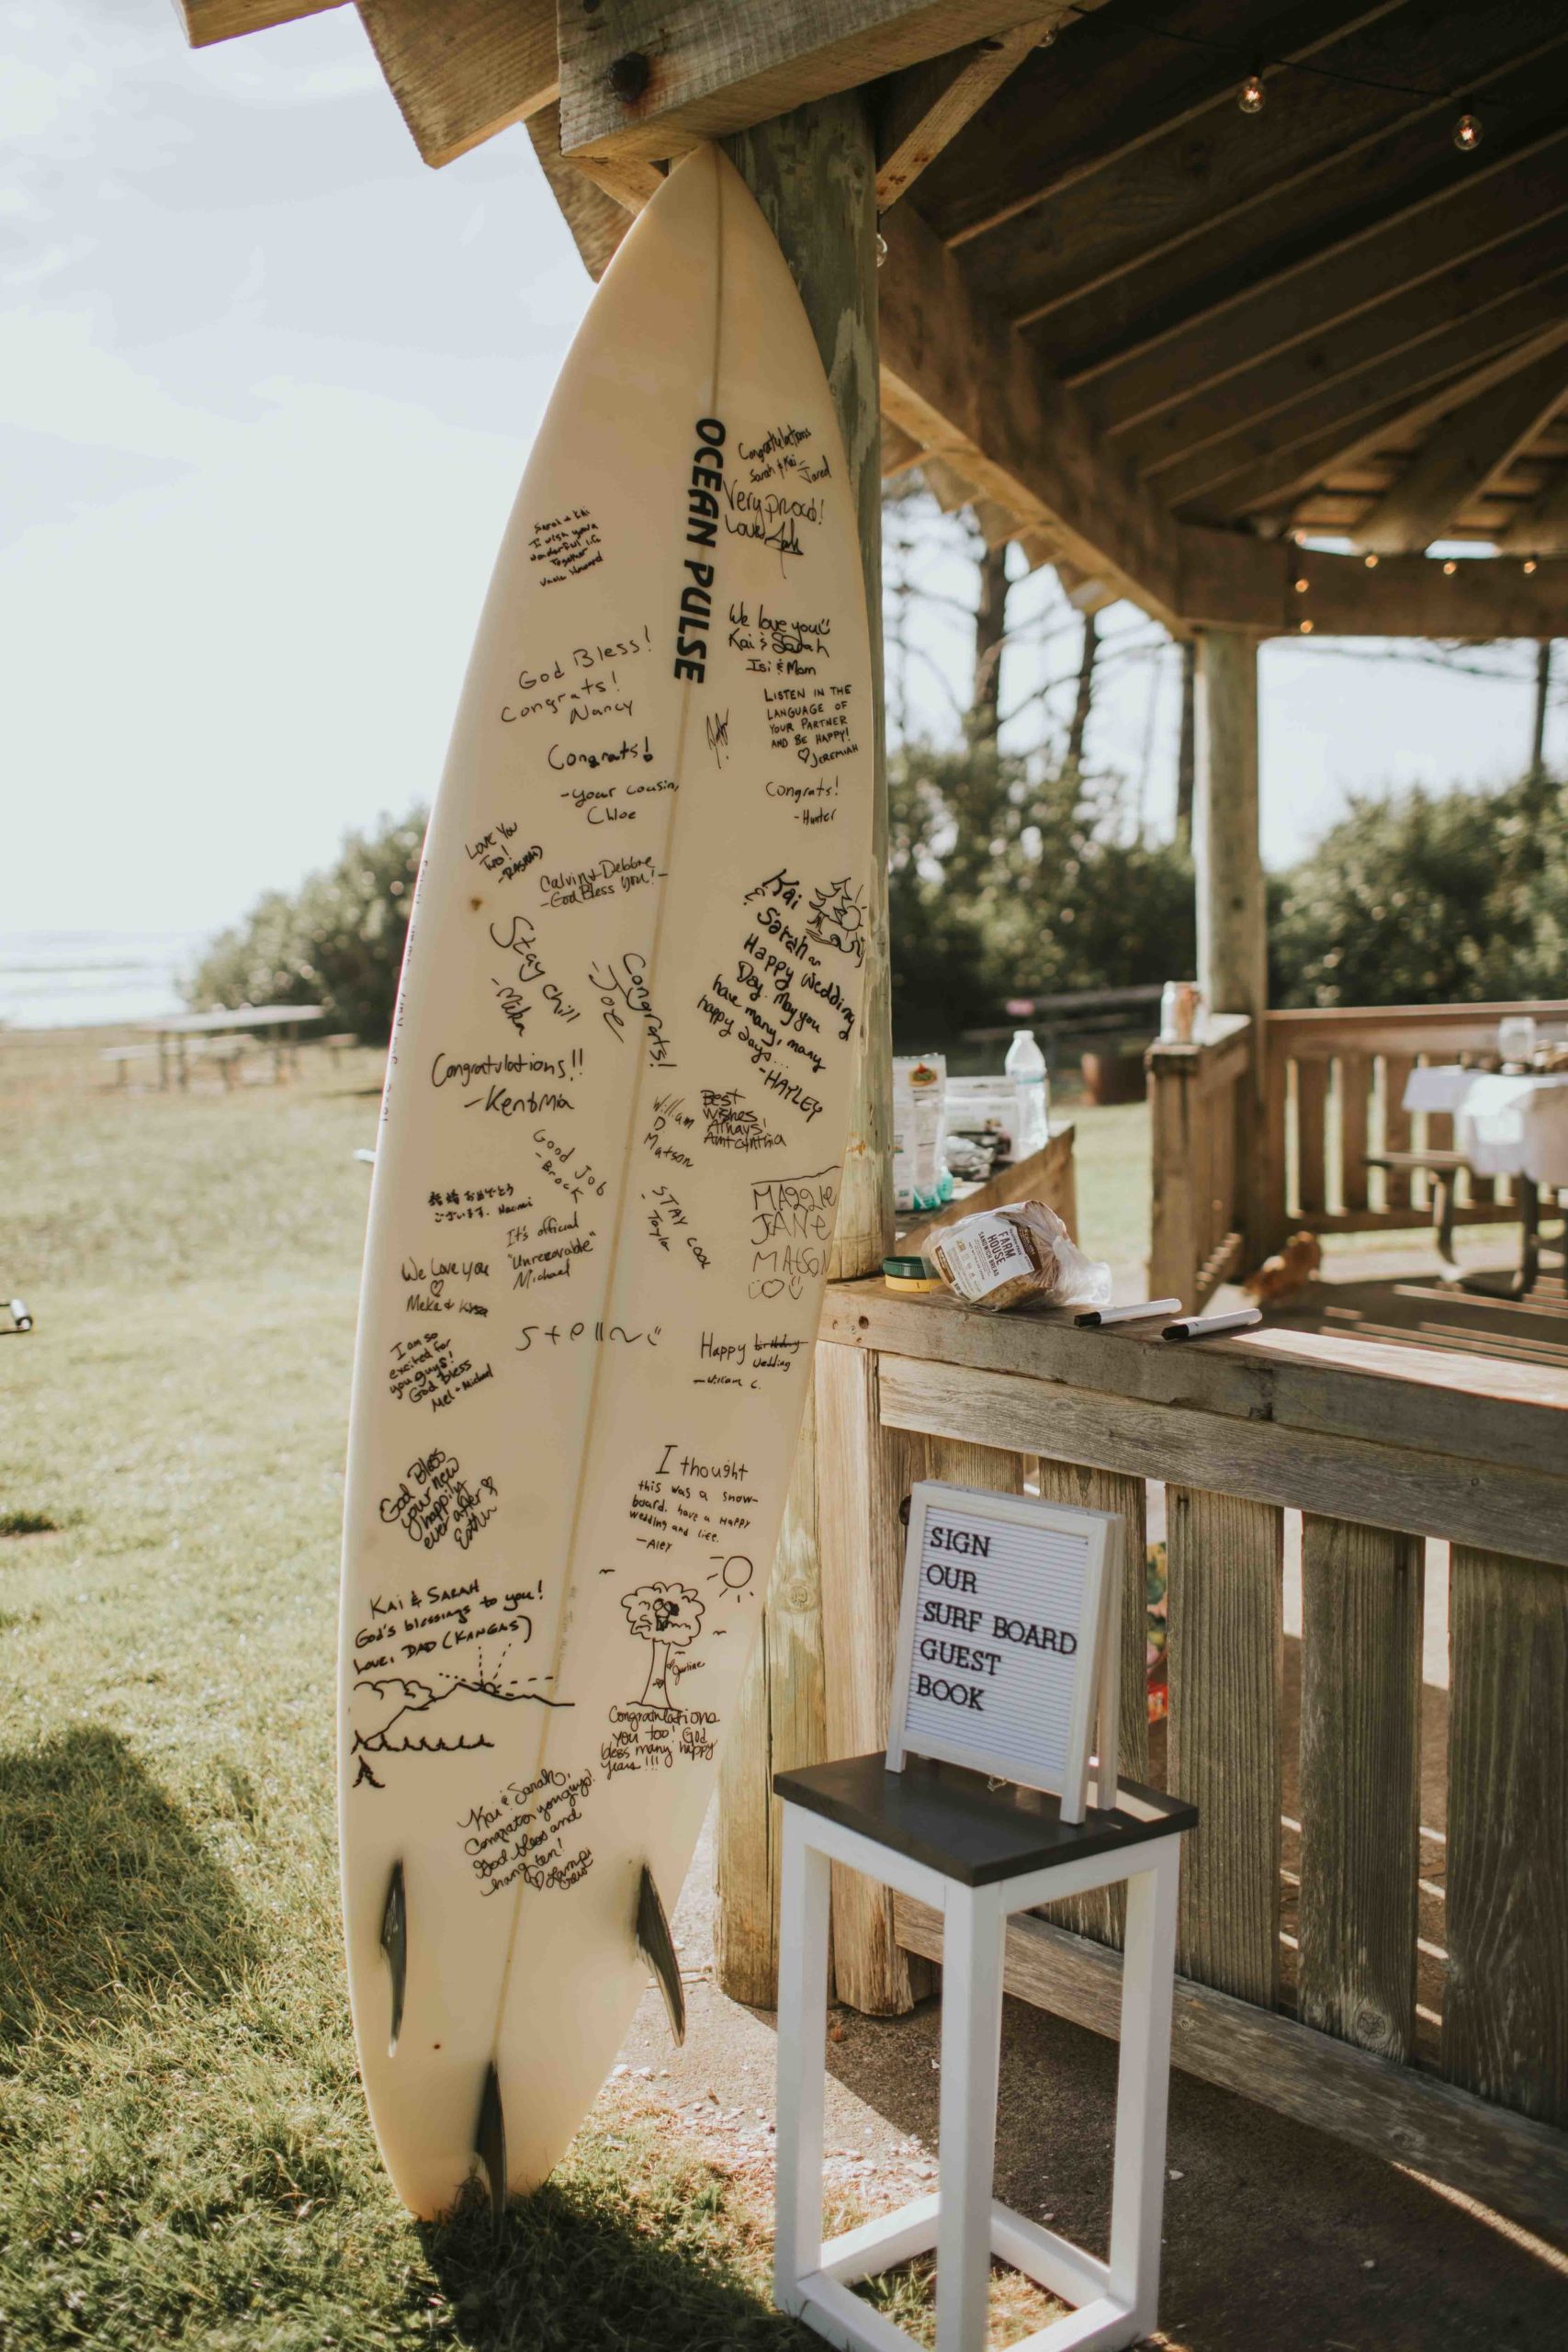 OCEAN PULSE
Congratulations
Sarah & Kai
- Jared
Very proud!
Love
Sarah & Kai
I wish you a
wonderful life
Together
Uncle Howard
We love you
Kai & Sarah
Isi & Mom
God Bless!
Congrats!
Nancy
LISTEN IN THE
LANGUAGE OF
YOUR PARTNER
AND BE HAPPY!
♡ JEREMIAH
Congrats!
- your cousin,
Chloe
Congrats!
- Hunter
Love You
Two!
Calvin & Debbie
- God Bless you! -
Kai
&
Sarah ~
Happy wedding
Day. May you
have many, many
happy days...
- HAYLEY
Stay chill
Congrats!
- Joe
Congratulations!!
- Ken & Mia
William
D
Matson
Best
Wishes
Always!
Aunt Cynthia
Good Job
- Brock
結婚おめでとう
ございます. Naomi
STAY COOL
- Taylor
MAGGIE
JANE
MATSON
It's official
"Unrezovable"
Michael
We Love you
♡
Meka &
Stella
I am so
excited for
you guys!
God Bless
Mel & Michael
Happy birthday
wedding
- William C.
God Bless
your new
happily
ever after
I thought
this was a snow-
board. have a HAPPY
wedding and life.
- Alex
KAI & SARAH
God's blessings to you!
Love, DAD (KANGAS)
Congratulations
you too! God
bless many happy
years!!!
Kai & Sarah,
Congrats you guys!
God bless and
hang ten!
FARM
HOUSE
SANDWICH BREAD
SIGN
OUR
SURF BOARD
GUEST
BOOK